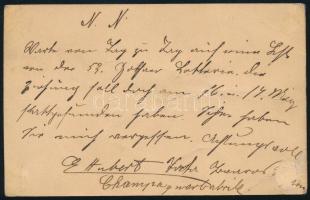 N. N.
Warte von Tag zu Tag auf eine Liste
von der 59. Lotterie, die
Ziehung soll doch am 16. u. 17. May
stattgefunden haben. Schon haben
Sie mich vergessen. Achtungsvoll
E Hubert
Champagnerfabrik